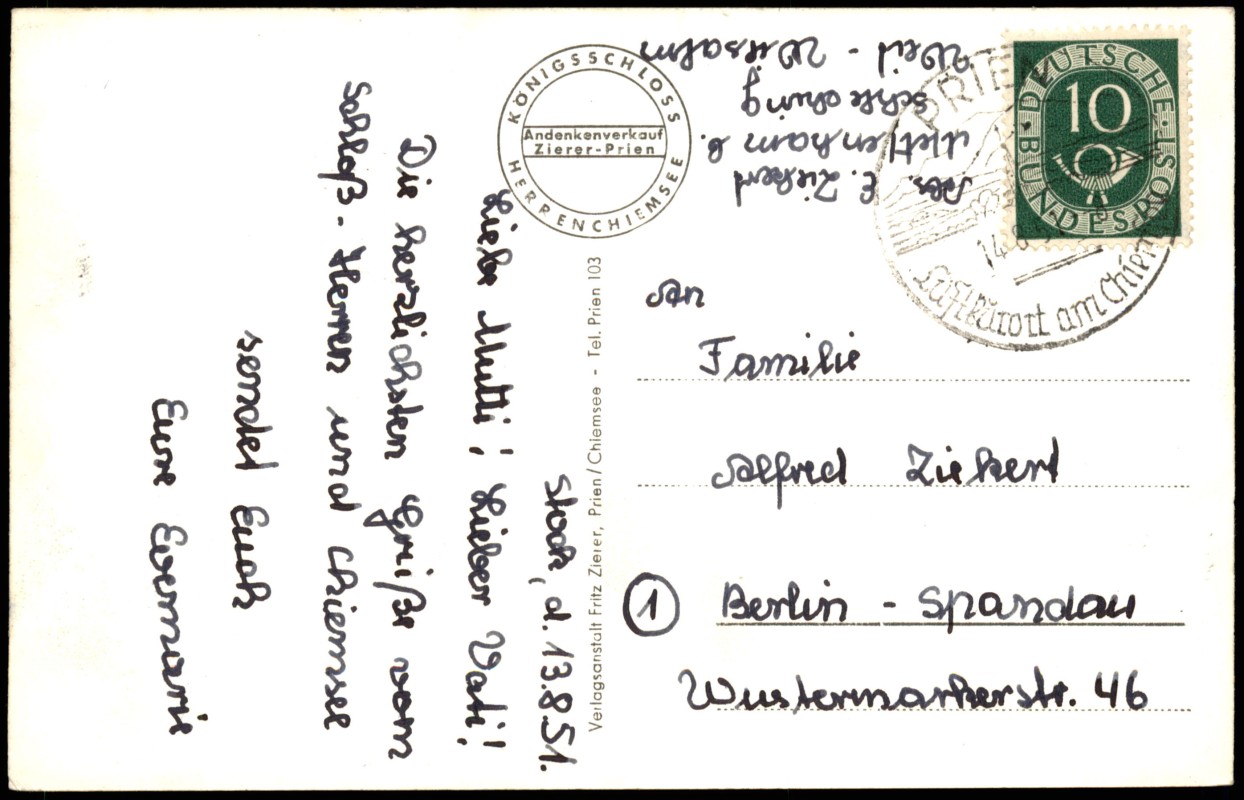 Stock, d. 13.8.51.
Liebe Mutti! Lieber Vati!
Die herzlichsten Grüße vom
Schloß-Herren und Chiemsee
sendet Euch
Eure Evemarie
KÖNIGSSCHLOSS
Andenkenverkauf
Zierer-Prien
HERRENCHIEMSEE
Verlagsanstalt Fritz Zierer, Prien/Chiemsee - Tel. Prien 103
Abs. E. Ziekert
Mettenham b.
Schleching
Weil -
DEUTSCHE
10
BUNDESPOST
PRIEN
14.8.
Luftkurort am Chiem
An
Familie
Alfred Ziekert
1 Berlin - Spandau
Wustermarkerstr. 46